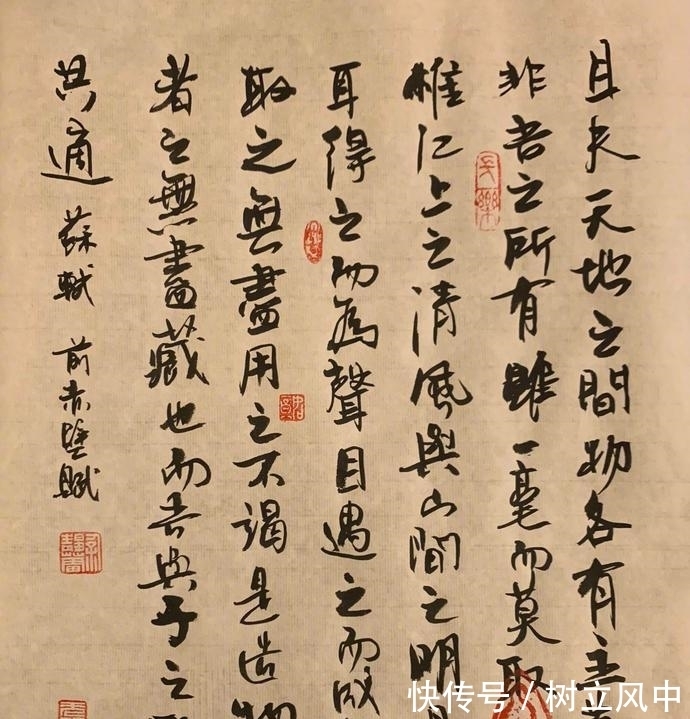 且夫天地之間物各有主
非吾之所有雖一毫而莫取
惟江上之清風與山間之明
耳得之而為聲目遇之而成
取之無盡用之不竭是造物
者之無盡藏也而吾與子之
共適 蘇軾 前赤壁賦
快传号 / 树立风中